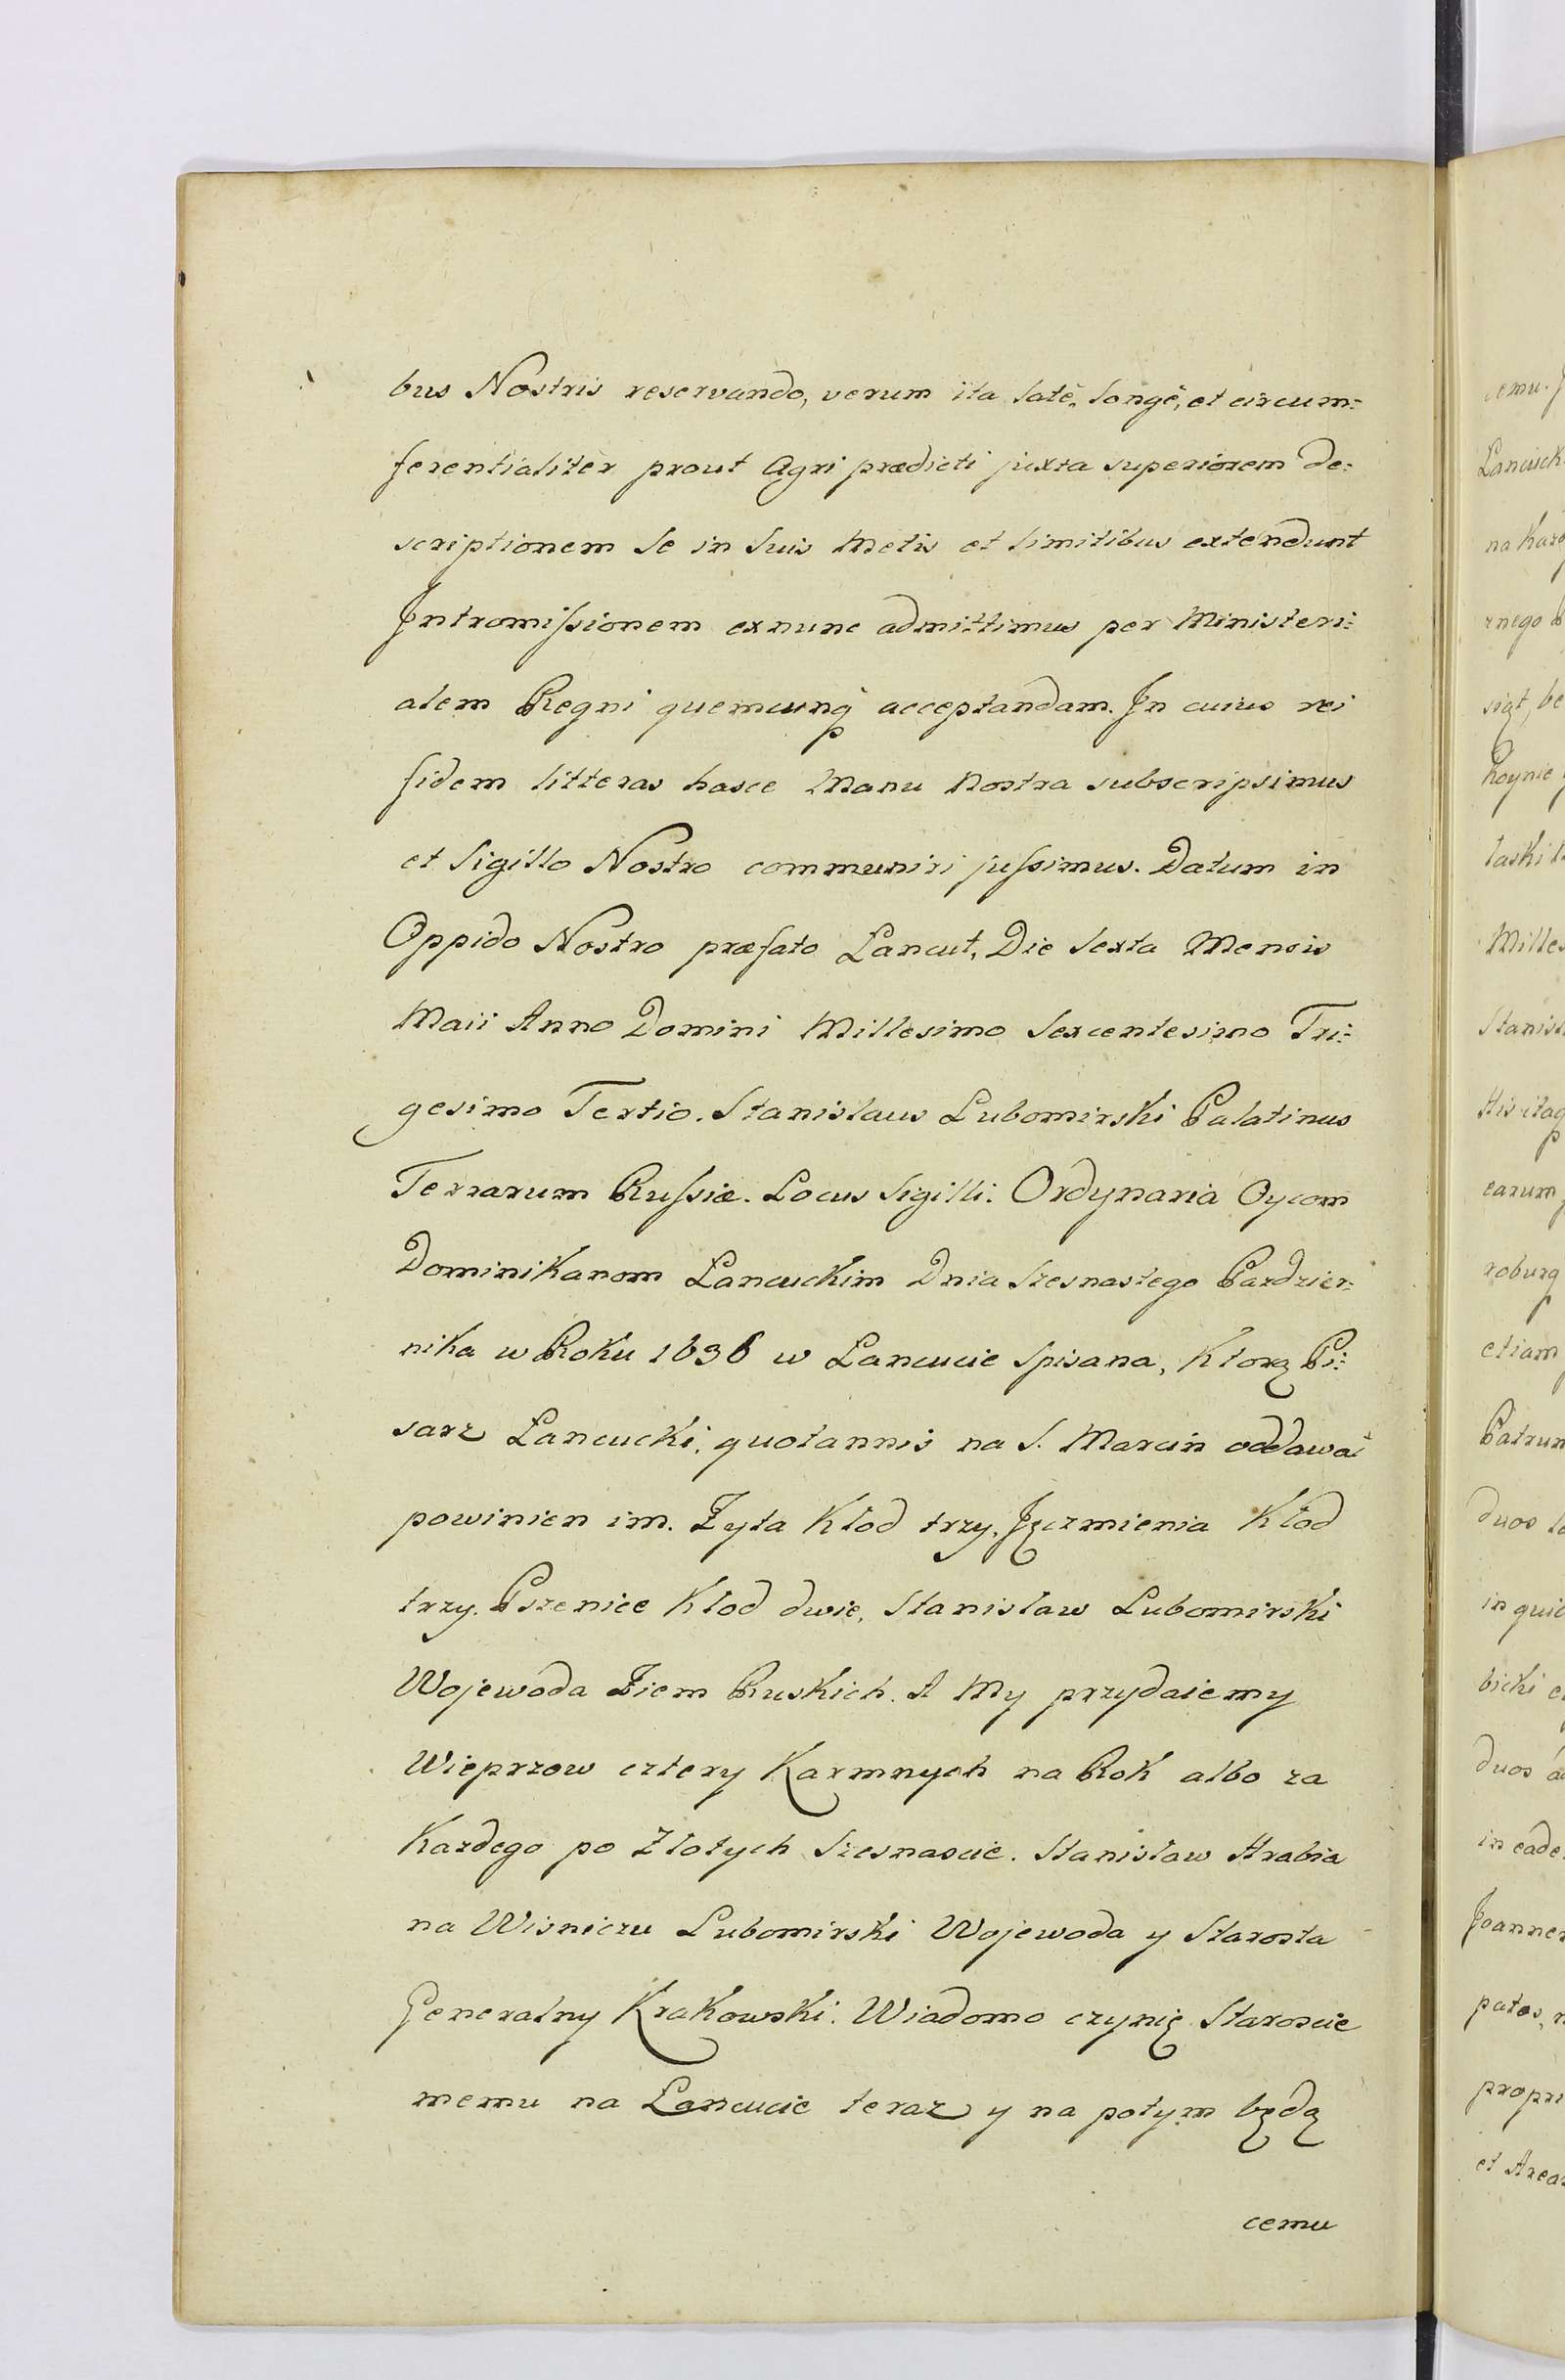 bus Nostris reservando, verum ita latè, longè, et circum=
ferentialitèr prout Agri prædicti juxta superiorem de=
scriptionem Se in Suis Metis et limitibus extendunt
Intromissionem exnunc admittimus per Ministeri=
alem Regni quemcunq̃ acceptandam. In cuius rei
fidem litteras hasce Manu Nostra subscripsimus
et Sigillo Nostro communiri jussimus. Datum in
Oppido Nostro præfato Lancut, Die Sexta Mensis
Maii Anno Domini Millesimo Sexcentesimo Tri=
gesimo Tertio. Stanislaus Lubomirski Palatinus
Terrarum Russiæ. Locus Sigilli. Ordynaria Oycom
Dominikanom Lancuckim Dnia Szesnastego Pazdzier=
nika w Roku 1636 w Lancucie Spisana, Ktorą Pi=
sarz Łancucki, quotannis na S. Marcin oddawać
powinien im. Żyta Kłod trzy, Jęczmienia Kłod
trzy. Pszenice Kłod dwie, Stanisław Lubomirski
Wojewoda Ziem Ruskich. A My przydaiemy
Wieprzow cztery Karmnych na Rok albo za
Kazdego po Złotych Szesnascie. Stanisław Hrabia
na Wisniczu Lubomirski Wojewoda y Starosta
Generalny Krakowski. Wiadomo czynię Staroscie
memu na Łancucie teraz y na potym będą
cemu
cemu.
Lancuck
na Kazd
rnego
siąt, be
hoynie
łaski
Milles
Stanisl
His itaq
earum
roburq
etiam
Patrum
duos
in quic
bicki
duos
in eade
Joannem
patos,
propri
et Areas